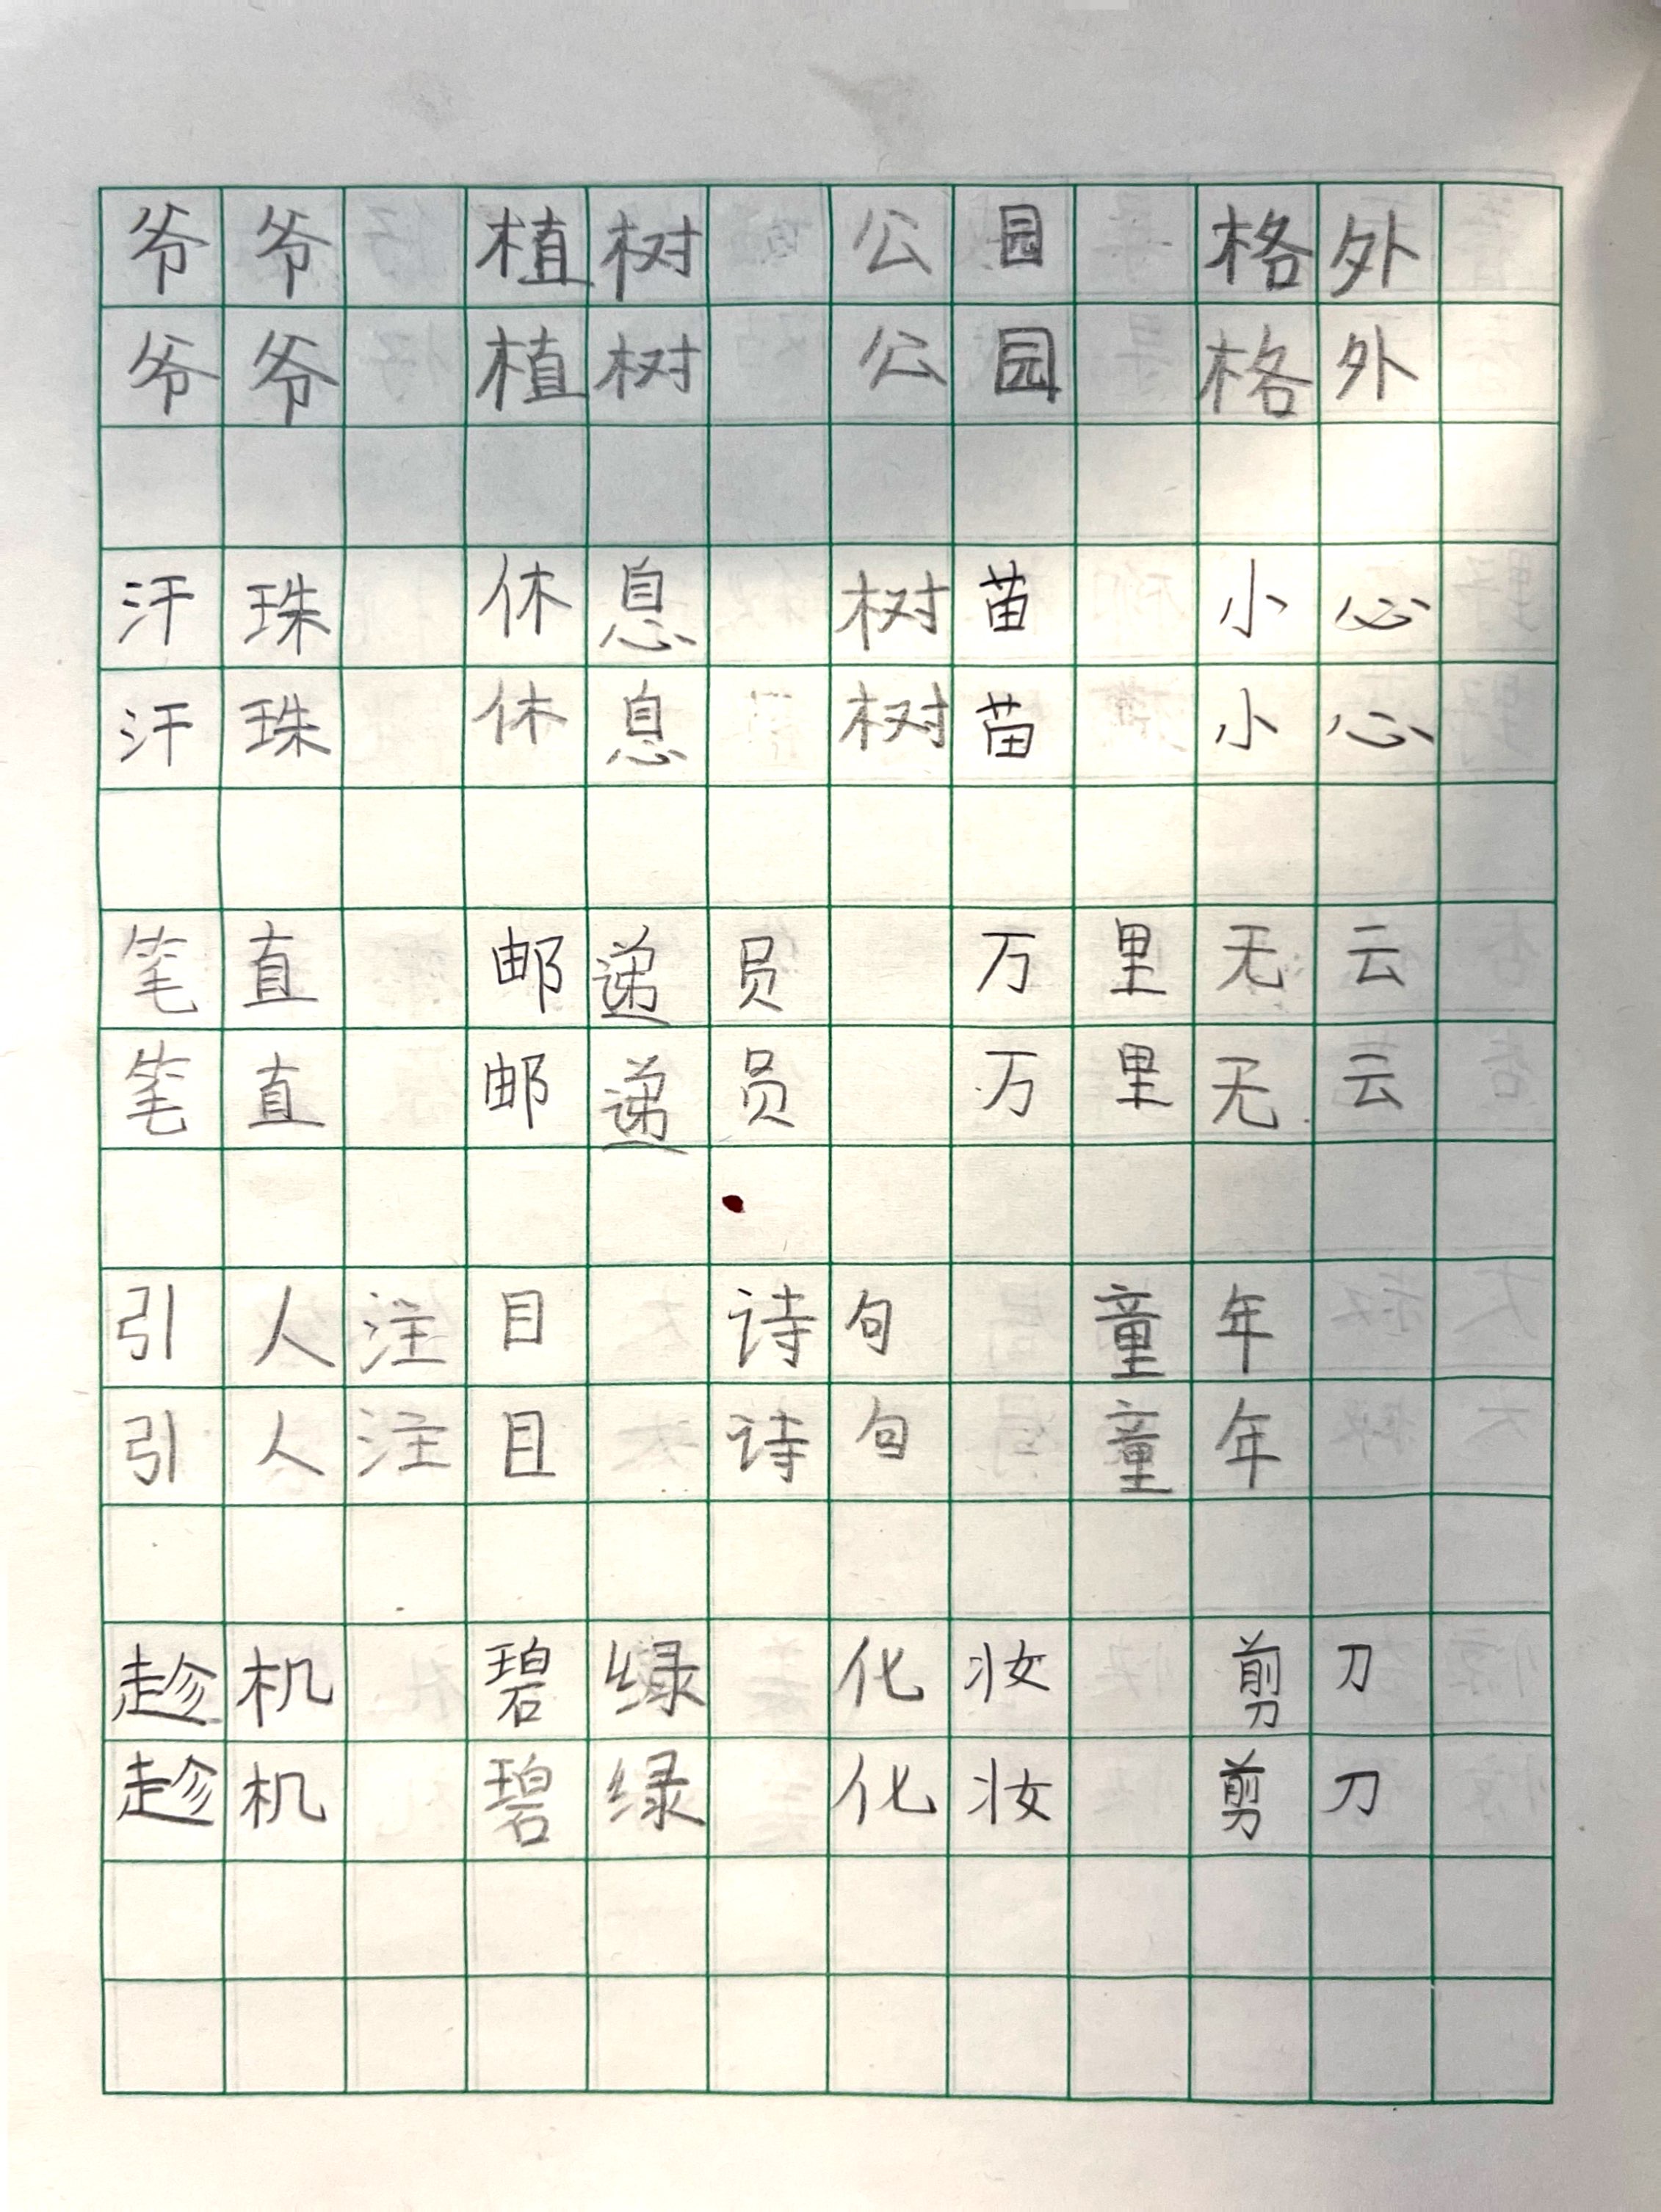 爷爷 植树 公园 格外
爷爷 植树 公园 格外
汗珠 休息 树苗 小心
汗珠 休息 树苗 小心
笔直 邮递员 万里无云
笔直 邮递员 万里无云
引人注目 诗句 童年
引人注目 诗句 童年
趁机 碧绿 化妆 剪刀
趁机 碧绿 化妆 剪刀